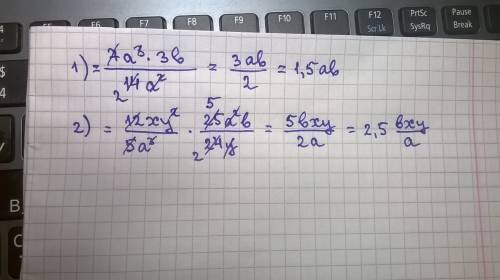 F6 F7 F8 F9 F10 F11 F12 Scr Lk PrtSc SysRq Pause Break
$ 4
1) = 7a³ · 3b / 2 14a² = 3ab / 2 = 1,5ab
2) = 12xy² / 5a³ · 5 25a²b / 2 24y = 5bxy / 2a = 2,5 bxy / a